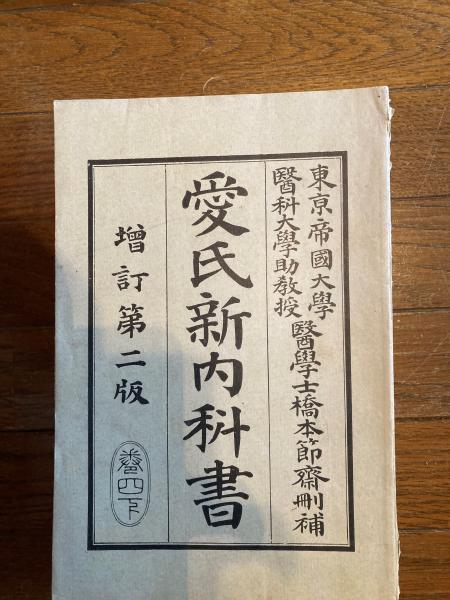 東京帝國大學
醫科大學助教授
醫學士橋本節齋刪補
愛氏新內科書
增訂第二版
卷四下